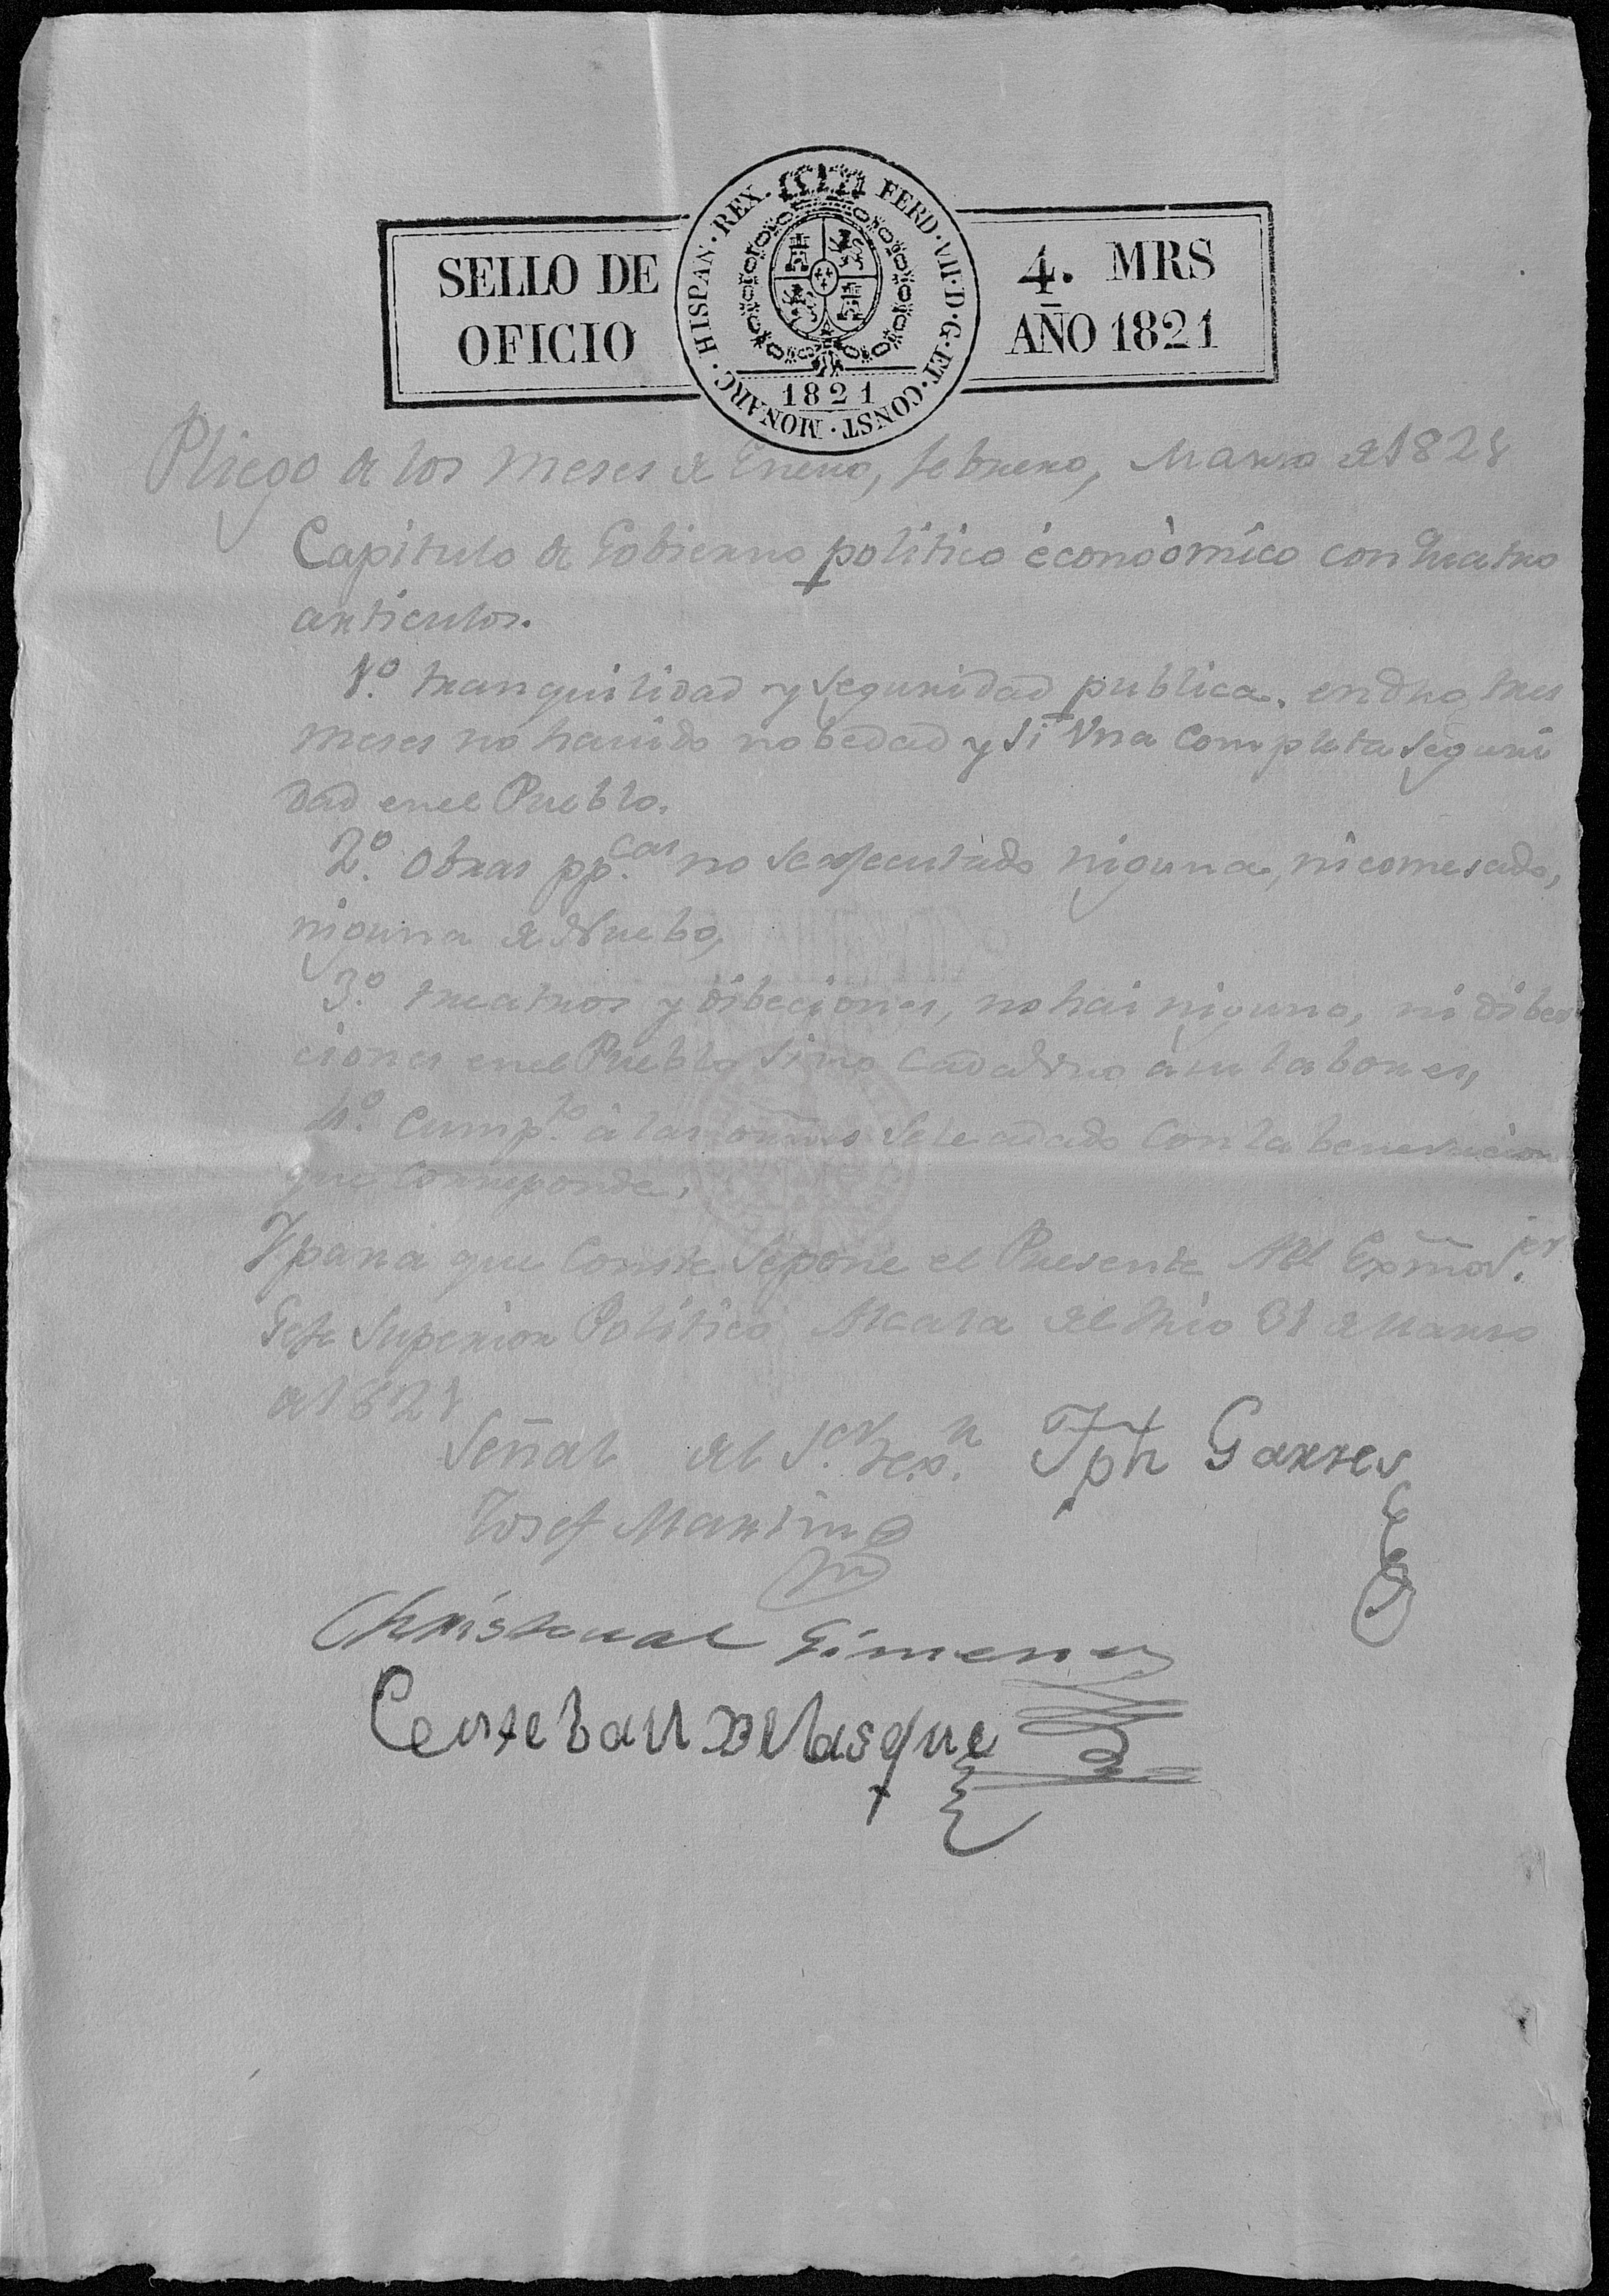 SELLO DE
OFICIO
HISPAN·REX. FERD·VII·D·G·ET·CONST·MONARC·
1821
4. MRS
AÑO 1821
Pliego de los meses de Enero, febrero, Marzo de 1821
Capitulo de Gobierno politico éconòomico con Quatro
articulos.
1º. tranquilidad y seguridad publica. en dho tres
meses no havido nobedad y si Vna Completa seguri
dad en el Pueblo.
2º. Obras pp.cas no se ejecutado niguna, ni comesado,
niguna de Nuebo,
3º. treatros y dibeciones, no hai niguno, ni diber
ciones en el Pueblo sino Cada Vno à su labores,
4º. Cump.to à las orñs se le adado Con la
que Corresponde,
Y para que Conste se pone el Presente Al Exmo S.or
Gefe Superior Politico Alcala del Rio 31 de Marzo
de 1821
Señal del S.or Jph Garres
Josef Martin
Christoual Gimenez
Esteban Belasque